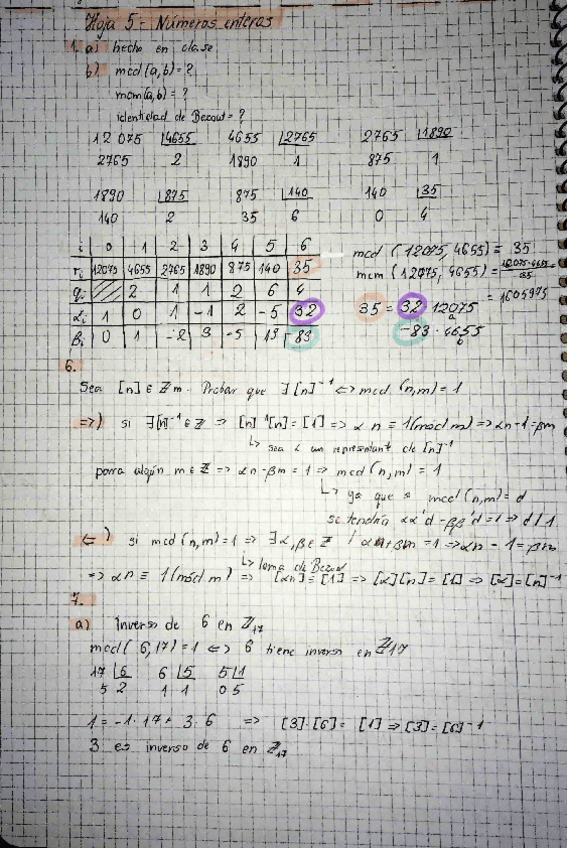 Hoja 5 - Números enteros
1. a) hecho en clase
b) mcd(a,b) = ?
mcm(a,b) = ?
identidad de Bezout = ?
12 075 |4655 4655 |2765 2765 |1890
2765 2 1890 1 875 1
1890 |875 875 |140 140 |35
140 2 35 6 0 4
i 0 1 2 3 4 5 6
ri 12075 4655 2765 1890 875 140 35
qi 2 1 1 2 6 4
αi 1 0 1 -1 2 -5 32
βi 0 1 -2 3 -5 13 -83
mcd (12075, 4655) = 35
mcm (12075, 4655) = 12075·4655/35
= 1605975
35 = 32·12075
a
-83·4655
b
6.
Sea [n] ∈ Zm. Probar que ∃ [n]⁻¹ <=> mcd (n,m) = 1
=>) si ∃[n]⁻¹ ∈ Z => [n]⁻¹[n] = [1] => αn ≡ 1(mód m) => αn-1 = βm
↳ sea α un representant de [n]⁻¹
para algún m ∈ Z => αn - βm = 1 => mcd (n,m) = 1
↳ ya que si mcd (n,m) = d
se tendría αα'd - ββ'd = 1 => d/1
<=) si mcd (n,m) = 1 => ∃ α,β ∈ Z / αn + βm = 1 => αn - 1 = βm
↳ lema de Bezout
=> αn ≡ 1(mód m) => [αn] = [1] => [α][n] = [1] => [α] = [n]⁻¹
7.
a) Inverso de 6 en Z17
mcd (6,17) = 1 <=> 6 tiene inverso en Z17
17 |6 6 |5 5 |1
5 2 1 1 0 5
1 = -1·17 + 3·6 => [3]·[6] = [1] => [3] = [6]⁻¹
3 es inverso de 6 en Z17